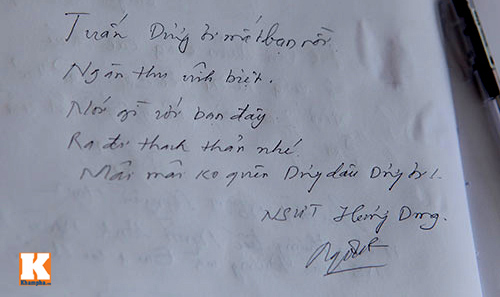 Tuấn Dũng bị mất bạn rồi
Ngàn thu vĩnh biệt.
Nói gì với bạn đây
Ra đi thanh thản nhé.
Mãi mãi ko quên Dũng đâu Dũng ơi.
NSƯT Hương Dung.
K
Khampha.vn